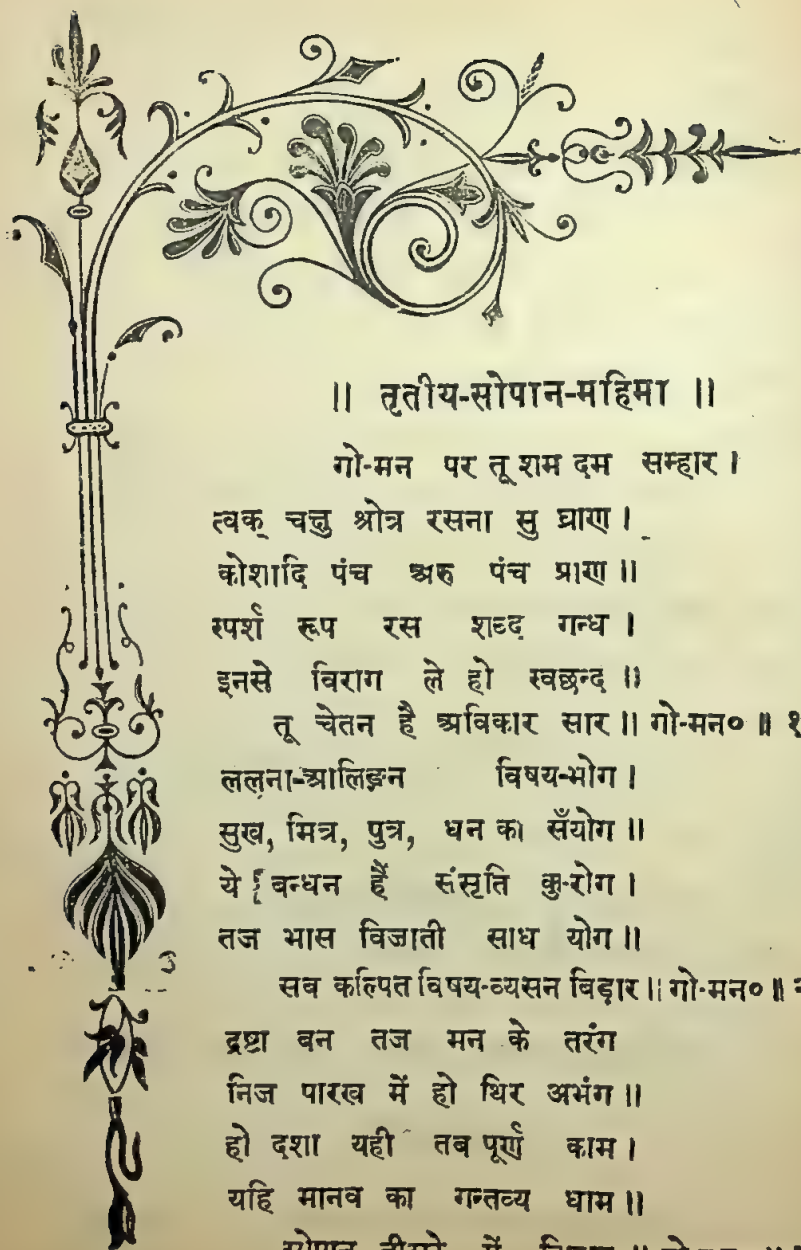 ॥ तृतीय-सोपान-महिमा ॥
गो-मन पर तू शम दम सम्हार ।
त्वक् चक्षु श्रोत्र रसना सु घ्राण ।
कोशादि पंच अरु पंच प्राण ॥
स्पर्श रूप रस शब्द गन्ध ।
इनसे विराग ले हो स्वछन्द ॥
तू चेतन है अविकार सार ॥ गो-मन० ॥ १
ललना-आलिङ्गन विषय-भोग ।
सुख, मित्र, पुत्र, धन का सँयोग ॥
ये बन्धन हैं संसृति कु-रोग ।
तज भास विजाती साध योग ॥
सब कल्पित विषय-व्यसन बिड़ार ॥ गो-मन० ॥
द्रष्टा बन तज मन के तरंग
निज पारख में हो थिर अभंग ॥
हो दशा यही तब पूर्ण काम ।
यहि मानव का गन्तव्य धाम ॥
सोपान तीसरे में